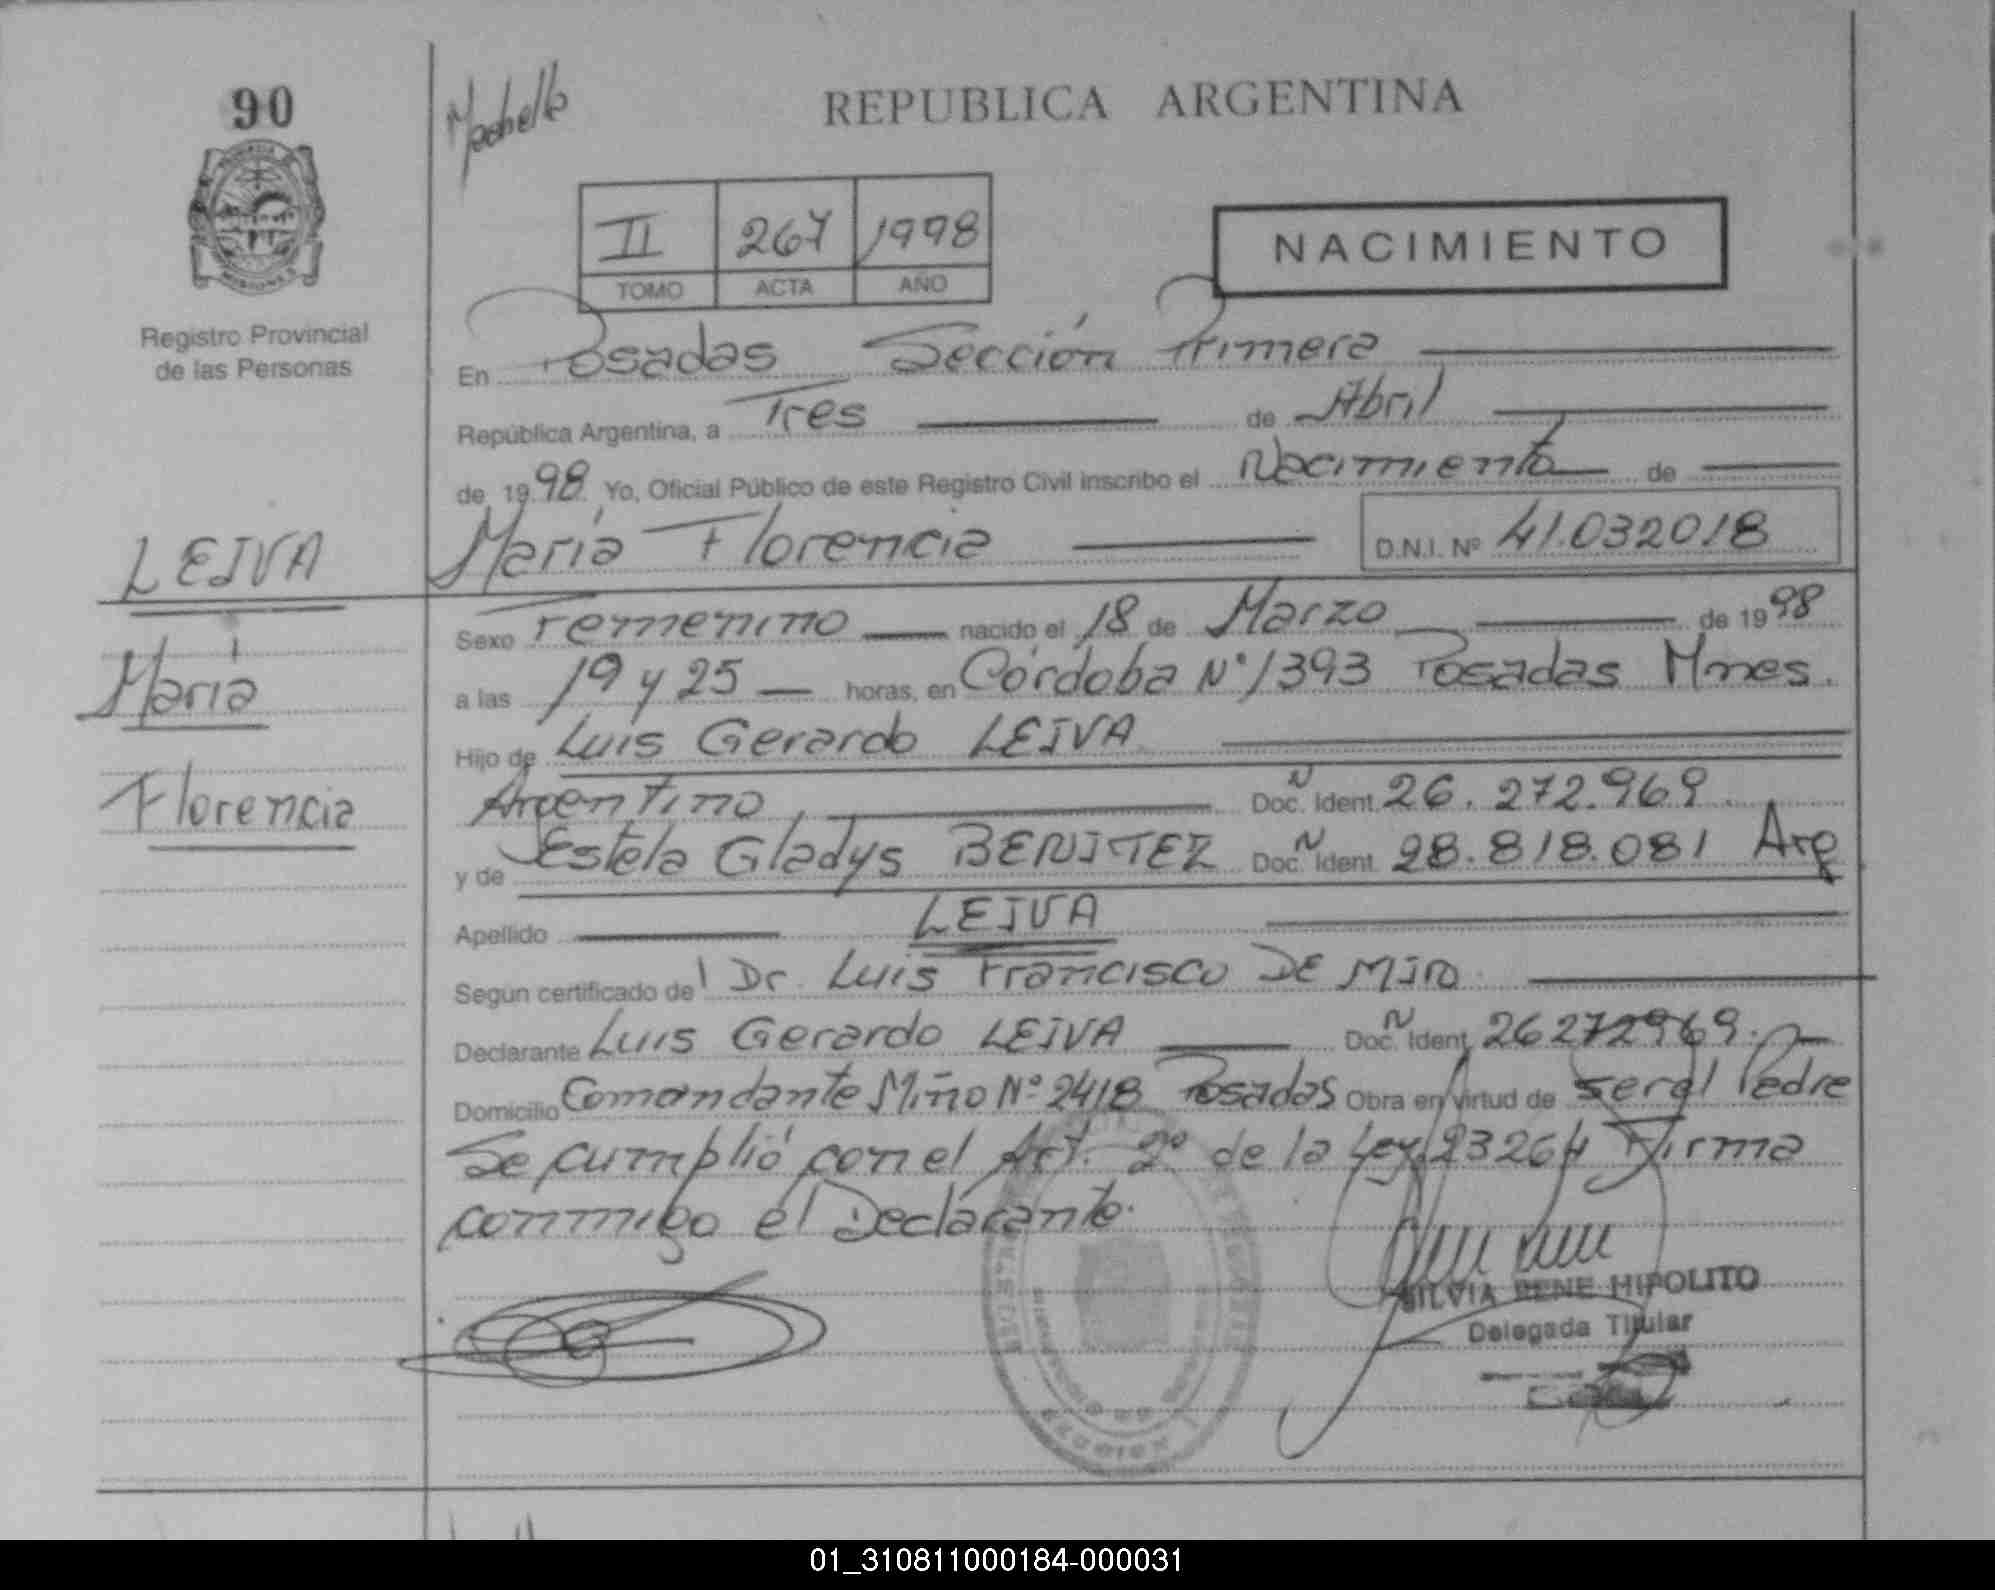 90
REPUBLICA ARGENTINA
II 267 1998
TOMO ACTA AÑO
NACIMIENTO
Registro Provincial
de las Personas
En Posadas Sección Primera
República Argentina, a Tres de Abril
de 1998 Yo, Oficial Público de este Registro Civil inscribo el Nacimiento de
María Florencia D.N.I. Nº 41.032018
LEIVA
María
Florencia
Sexo Femenino nacido el 18 de Marzo de 1998
a las 19 y 25 horas, en Córdoba Nº 1393 Posadas Mnes.
Hijo de Luis Gerardo LEIVA
Argentino Doc. Ident. 26.272.969
y de Estela Gladys BENITEZ Doc. Ident. 28.818.081 Arg
Apellido LEIVA
Según certificado del Dr. Luis Francisco DE MIRO
Declarante Luis Gerardo LEIVA Doc. Ident. 26272969.
Domicilio Comandante Miño Nº 2418 Posadas Obra en virtud de ser el Padre
Se cumplió con el Art. 2º de la Ley 23264 Firma
conmigo el Declarante.
SILVIA RENE HIPOLITO
Delegada Titular
01_310811000184-000031